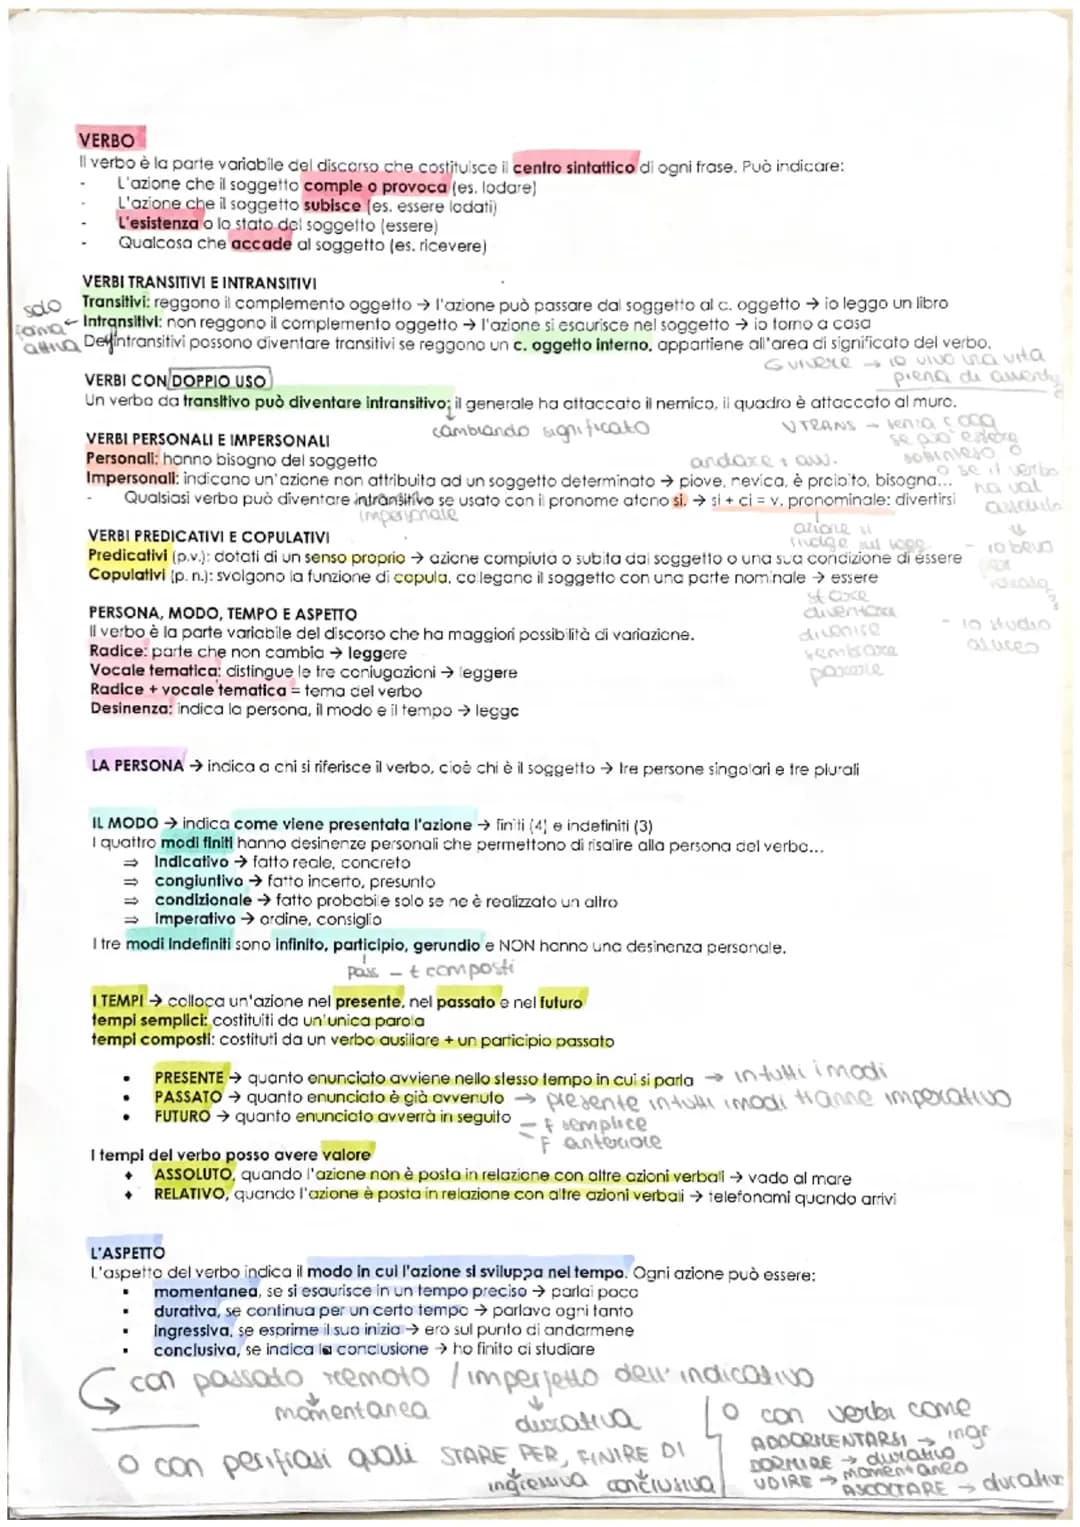 VERBO
Il verbo è la parte variabile del discorso che costituisce il centro sintattico di ogni frase. Può indicare:
- L'azione che il soggetto compie o provoca (es. lodare)
- L'azione che il soggetto subisce (es. essere lodati)
- L'esistenza o lo stato del soggetto (essere)
- Qualcosa che accade al soggetto (es. ricevere)
VERBI TRANSITIVI E INTRANSITIVI
Transitivi: reggono il complemento oggetto → l'azione può passare dal soggetto al c. oggetto → io leggo un libro
solo forma attiva ← Intransitivi: non reggono il complemento oggetto → l'azione si esaurisce nel soggetto → io torno a casa
intransitivi possono diventare transitivi se reggono un c. oggetto interno, appartiene all'area di significato del verbo.
vivere → io vivo una vita
piena di
VERBI CON DOPPIO USO
Un verbo da transitivo può diventare intransitivo; il generale ha attaccato il nemico, il quadro è attaccato al muro.
cambiando significato
V TRANS → senza c. ogg
se può essere
sottinteso o
o se il verbo
ha val
VERBI PERSONALI E IMPERSONALI
Personali: hanno bisogno del soggetto
andare + avv.
Impersonali: indicano un'azione non attribuita ad un soggetto determinato → piove, nevica, è proibito, bisogna...
- Qualsiasi verbo può diventare intransitivo se usato con il pronome atono si. → si + ci = v. pronominale: divertirsi
impersonale
azione si
sul sogg
VERBI PREDICATIVI E COPULATIVI
Predicativi (p.v.): dotati di un senso proprio → azione compiuta o subita dal soggetto o una sua condizione di essere
- io bevo
Copulativi (p. n.): svolgono la funzione di copula, collegano il soggetto con una parte nominale → essere
stare
diventare
divenire
sembrare
parere
- io studio
PERSONA, MODO, TEMPO E ASPETTO
Il verbo è la parte variabile del discorso che ha maggiori possibilità di variazione.
Radice: parte che non cambia → leggere
Vocale tematica: distingue le tre coniugazioni → leggere
Radice + vocale tematica = tema del verbo
Desinenza: indica la persona, il modo e il tempo → leggo
LA PERSONA → indica a chi si riferisce il verbo, cioè chi è il soggetto → tre persone singolari e tre plurali
IL MODO → indica come viene presentata l'azione → finiti (4) e indefiniti (3)
I quattro modi finiti hanno desinenze personali che permettono di risalire alla persona del verbo...
⇒ Indicativo → fatto reale, concreto
⇒ congiuntivo → fatto incerto, presunto
⇒ condizionale → fatto probabile solo se ne è realizzato un altro
⇒ Imperativo → ordine, consiglio
I tre modi Indefiniti sono infinito, participio, gerundio e NON hanno una desinenza personale.
pass – t composti
I TEMPI → colloca un'azione nel presente, nel passato e nel futuro
tempi semplici: costituiti da un'unica parola
tempi composti: costituti da un verbo ausiliare + un participio passato
• PRESENTE → quanto enunciato avviene nello stesso tempo in cui si parla → in tutti i modi
• PASSATO → quanto enunciato è già avvenuto → presente in tutti i modi tranne imperativo
• FUTURO → quanto enunciato avverrà in seguito – f semplice
– F anteriore
I tempi del verbo posso avere valore
♦ ASSOLUTO, quando l'azione non è posta in relazione con altre azioni verbali → vado al mare
♦ RELATIVO, quando l'azione è posta in relazione con altre azioni verbali → telefonami quando arrivi
L'ASPETTO
L'aspetto del verbo indica il modo in cui l'azione si sviluppa nel tempo. Ogni azione può essere:
▪ momentanea, se si esaurisce in un tempo preciso → parlai poco
▪ durativa, se continua per un certo tempo → parlava ogni tanto
▪ ingressiva, se esprime il suo inizia → ero sul punto di andarmene
▪ conclusiva, se indica la conclusione → ho finito di studiare
con passato remoto / imperfetto dell'indicativo
momentanea durativa
o con perifrasi quali STARE PER, FINIRE DI
ingressiva conclusiva
o con verbi come
ADDORMENTARSI → ingr
DORMIRE → durativo
UDIRE → momentaneo
ASCOLTARE → durativo